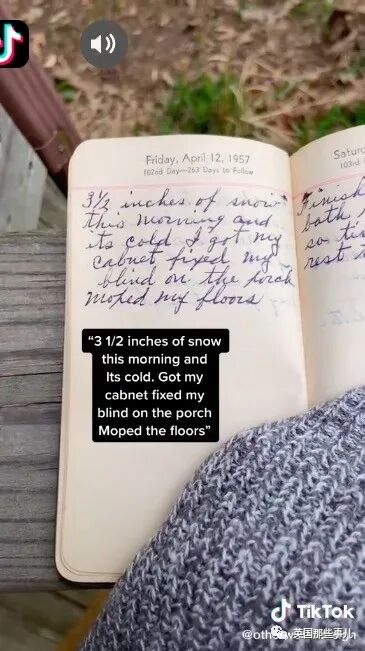 Friday, April 12, 1957
102nd Day—263 Days to Follow
3½ inches of snow
this morning and
its cold I got my
cabnet fixed my
blind on the porch
moped my floors
Satur
103rd
Finish
both
so ti
rest
“3 1/2 inches of snow
this morning and
Its cold. Got my
cabnet fixed my
blind on the porch
Moped the floors”
TikTok
英国那些事儿